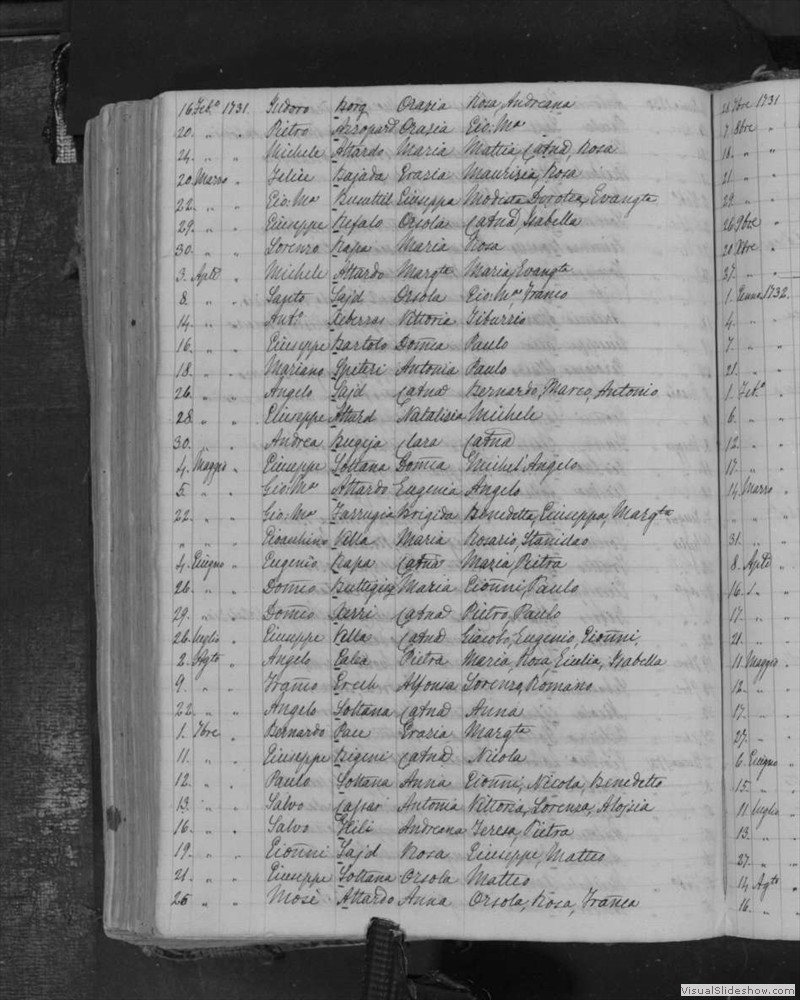 16 Feb.o 1731 Isidoro Borg Orazia Rosa, Andreana
20. " " Pietro Azzopard Orazia Gio: Ma
24. " " Michele Attardo Maria Mattia, Catnd, Rosa
20 Marzo " Felice Bajada Grazia Maurizia, Rosa
22. " " Gio: Ma Busuttil Giuseppa Modesta, Dorotea, Evangta
29. " " Giuseppe Refalo Orsola Catnd, Isabella
30. " " Lorenzo Rapa Maria Rosa
3. Aple " Michele Attardo Margta Maria, Evangta
8. " " Sajd Orsola Gio: Ma, Franco
14. " " Ant.o Xeberras Vittoria Tiburzio
16. " " Giuseppe Bartolo Domca Paulo
18. " " Mariano Spiteri Antonia Paulo
26. " " Angelo Sajd Catnd Bernardo, Marco, Antonio
28. " " Giuseppe Attard Natalizia Michele
30. " " Andrea Bugeja Clara Catnd
4. Maggio " Giuseppe Soltana Domca Michel'Angelo
5. " " Gio: Ma Attardo Eugenia Angelo
22. " " Gio: Ma Farrugia Brigida Benedetta, Giuseppa, Margta
" " " Gioachino Vella Maria Rosario, Stanislao
4. Giugno " Eugenio Rapa Catnd Maria, Pietra
26. " " Domco Buttigieg Maria Gionni, Paulo
29. " " Domco Xerri Catnd Pietro, Paulo
26. Luglio " Giuseppe Vella Catnd Giacobo, Eugenio, Gionni,
2. Agto " Angelo Galea Pietra Maria, Rosa, Giulia, Isabella
9. " " Franco Grech Alfonsa Lorenzo, Romano
22. " " Angelo Soltana Catnd Anna
1. 7bre " Bernardo Pace Grazia Margta
11. " " Giuseppe Bigeni Catnd Nicola
12. " " Paulo Soltana Anna Gionni, Nicola, Benedetto
13. " " Salvo Cassar Antonia Vittoria, Lorenza, Alojsia
16. " " Salvo Xeili Andreana Teresa, Pietra
19. " " Gionni Sajd Rosa Giuseppe, Matteo
21. " " Giuseppe Soltana Orsola Matteo
25 " " Mosè Attardo Anna Orsola, Rosa, Franca
28 7bre 1731
7 8bre "
18. " "
21. " "
29. " "
26 9bre "
20 Xbre "
27. " "
1. Genna 1732.
4. " "
7. " "
21. " "
1. Feb.o "
6. " "
12. " "
17. " "
14. Marzo "
" " "
31. " "
8. Aple "
16. " "
17. " "
21. " "
11. Maggio "
12. " "
17. " "
27. " "
6. Giugno "
15. " "
11. Luglio "
13. " "
27. " "
14. Agto "
16. " "
VisualSlideshow.com